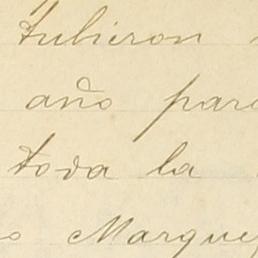 tubieron
año para
toda la
Marque